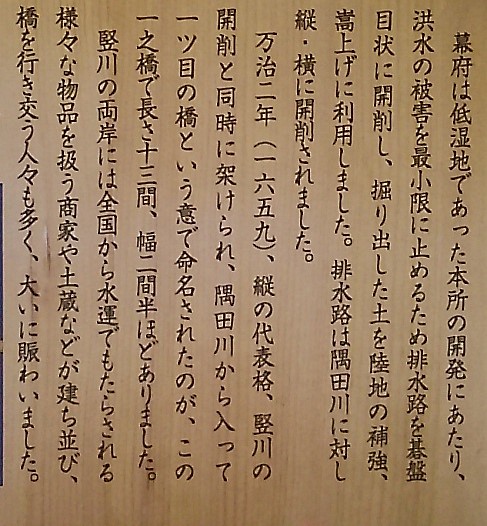 幕府は低湿地であった本所の開発にあたり、
洪水の被害を最小限に止めるため排水路を碁盤
目状に開削し、掘り出した土を陸地の補強、
嵩上げに利用しました。排水路は隅田川に対し
縦・横に開削されました。
万治二年（一六五九）、縦の代表格、竪川の
開削と同時に架けられ、隅田川から入って
一ツ目の橋という意で命名されたのが、この
一之橋で長さ十三間、幅二間半ほどありました。
竪川の両岸には全国から水運でもたらされる
様々な物品を扱う商家や土蔵などが建ち並び、
橋を行き交う人々も多く、大いに賑わいました。